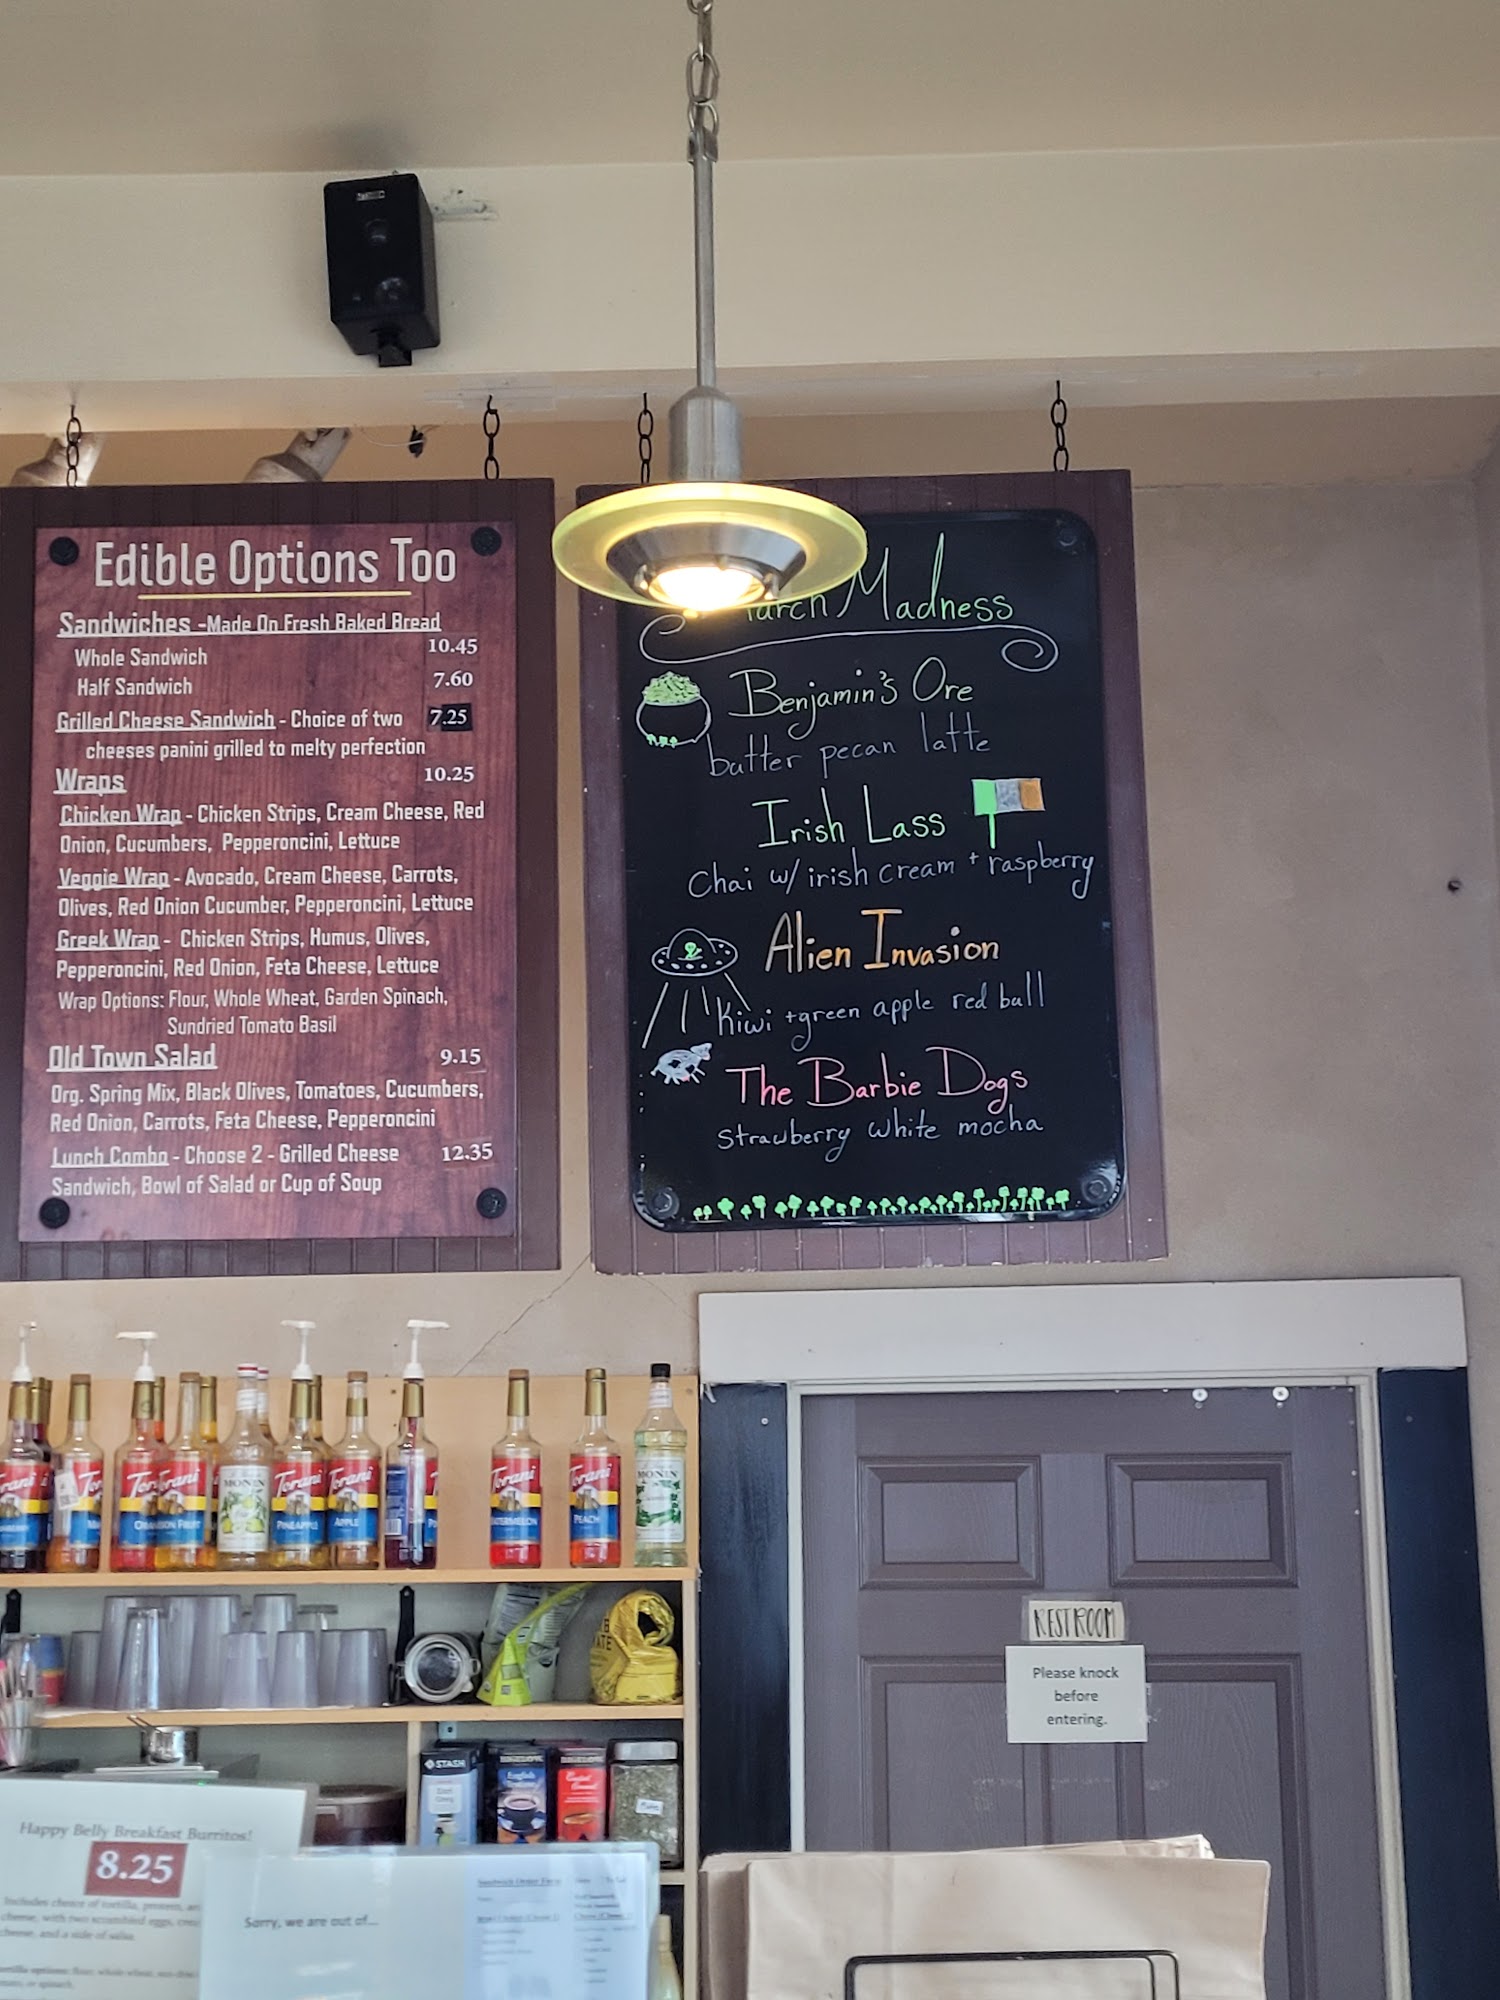 Edible Options Too
Sandwiches -Made On Fresh Baked Bread
Whole Sandwich 10.45
Half Sandwich 7.60
Grilled Cheese Sandwich - Choice of two 7.25
cheeses panini grilled to melty perfection
Wraps 10.25
Chicken Wrap - Chicken Strips, Cream Cheese, Red
Onion, Cucumbers, Pepperoncini, Lettuce
Veggie Wrap - Avocado, Cream Cheese, Carrots,
Olives, Red Onion Cucumber, Pepperoncini, Lettuce
Greek Wrap - Chicken Strips, Humus, Olives,
Pepperoncini, Red Onion, Feta Cheese, Lettuce
Wrap Options: Flour, Whole Wheat, Garden Spinach,
Sundried Tomato Basil
Old Town Salad 9.15
Org. Spring Mix, Black Olives, Tomatoes, Cucumbers,
Red Onion, Carrots, Feta Cheese, Pepperoncini
Lunch Combo - Choose 2 - Grilled Cheese 12.35
Sandwich, Bowl of Salad or Cup of Soup
March Madness
Benjamin's Ore
butter pecan latte
Irish Lass
Chai w/ irish cream + raspberry
Alien Invasion
Kiwi + green apple red bull
The Barbie Dogs
Strawberry white mocha
Torani
Torani
MONIN
Torani
PINEAPPLE
Torani
APPLE
Torani
WATERMELON
Torani
PEACH
MONIN
RESTROOM
Please knock
before
entering.
STASH
English
Happy Belly Breakfast Burritos!
8.25
Includes choice of tortilla, protein,
cheese, with two scrambled eggs,
cheese, and a side of salsa.
Sorry, we are out of...
Sandwich Order Form